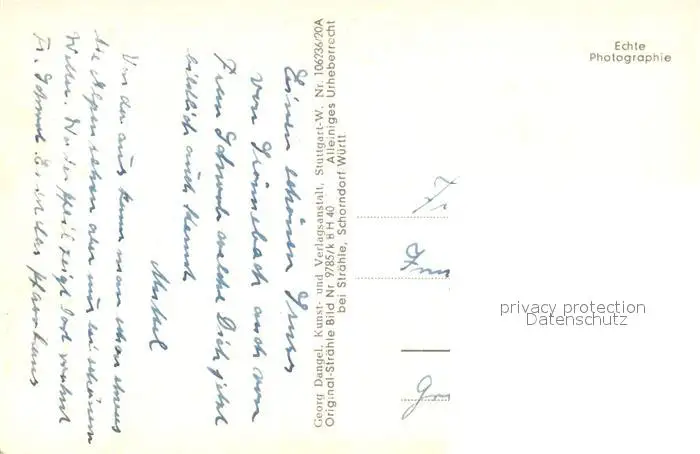 Einen schönen Gruss
von
auch von
Frau Schwab welche Dich jetzt
bildlich auch kennt
Von da aus kann man schon
die Alpen sehen aber nur bei schönem
Wetter. Wo der Pfeil zeigt dort wohnt
Fr. Schwab. Es ist das Pfarrhaus
Georg Dangel, Kunst- und Verlagsanstalt, Stuttgart-W. Nr. 106236/20A
Original-Strähle Bild Nr 9785/k B H 40 Alleiniges Urheberrecht
bei Strähle, Schorndorf Württ.
Echte
Photographie
privacy protection
Datenschutz